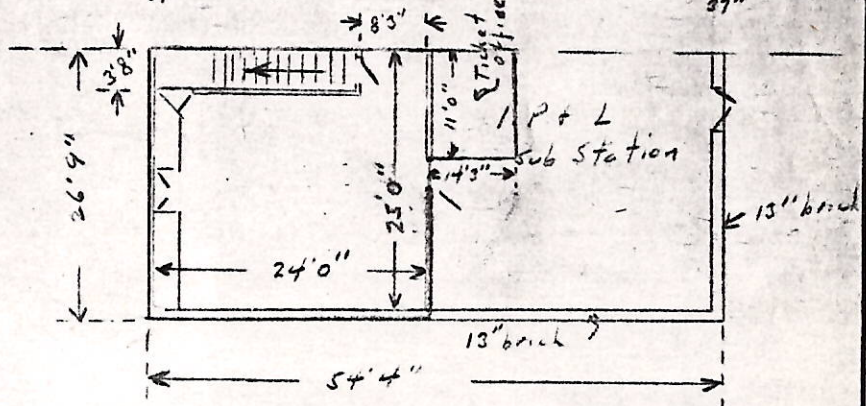 8'3"
37"
3'8"
Ticket
Office
11'0"
I P + L
Sub Station
14'3"
26'9"
25'0"
13" brick
24'0"
13" brick
54'4"